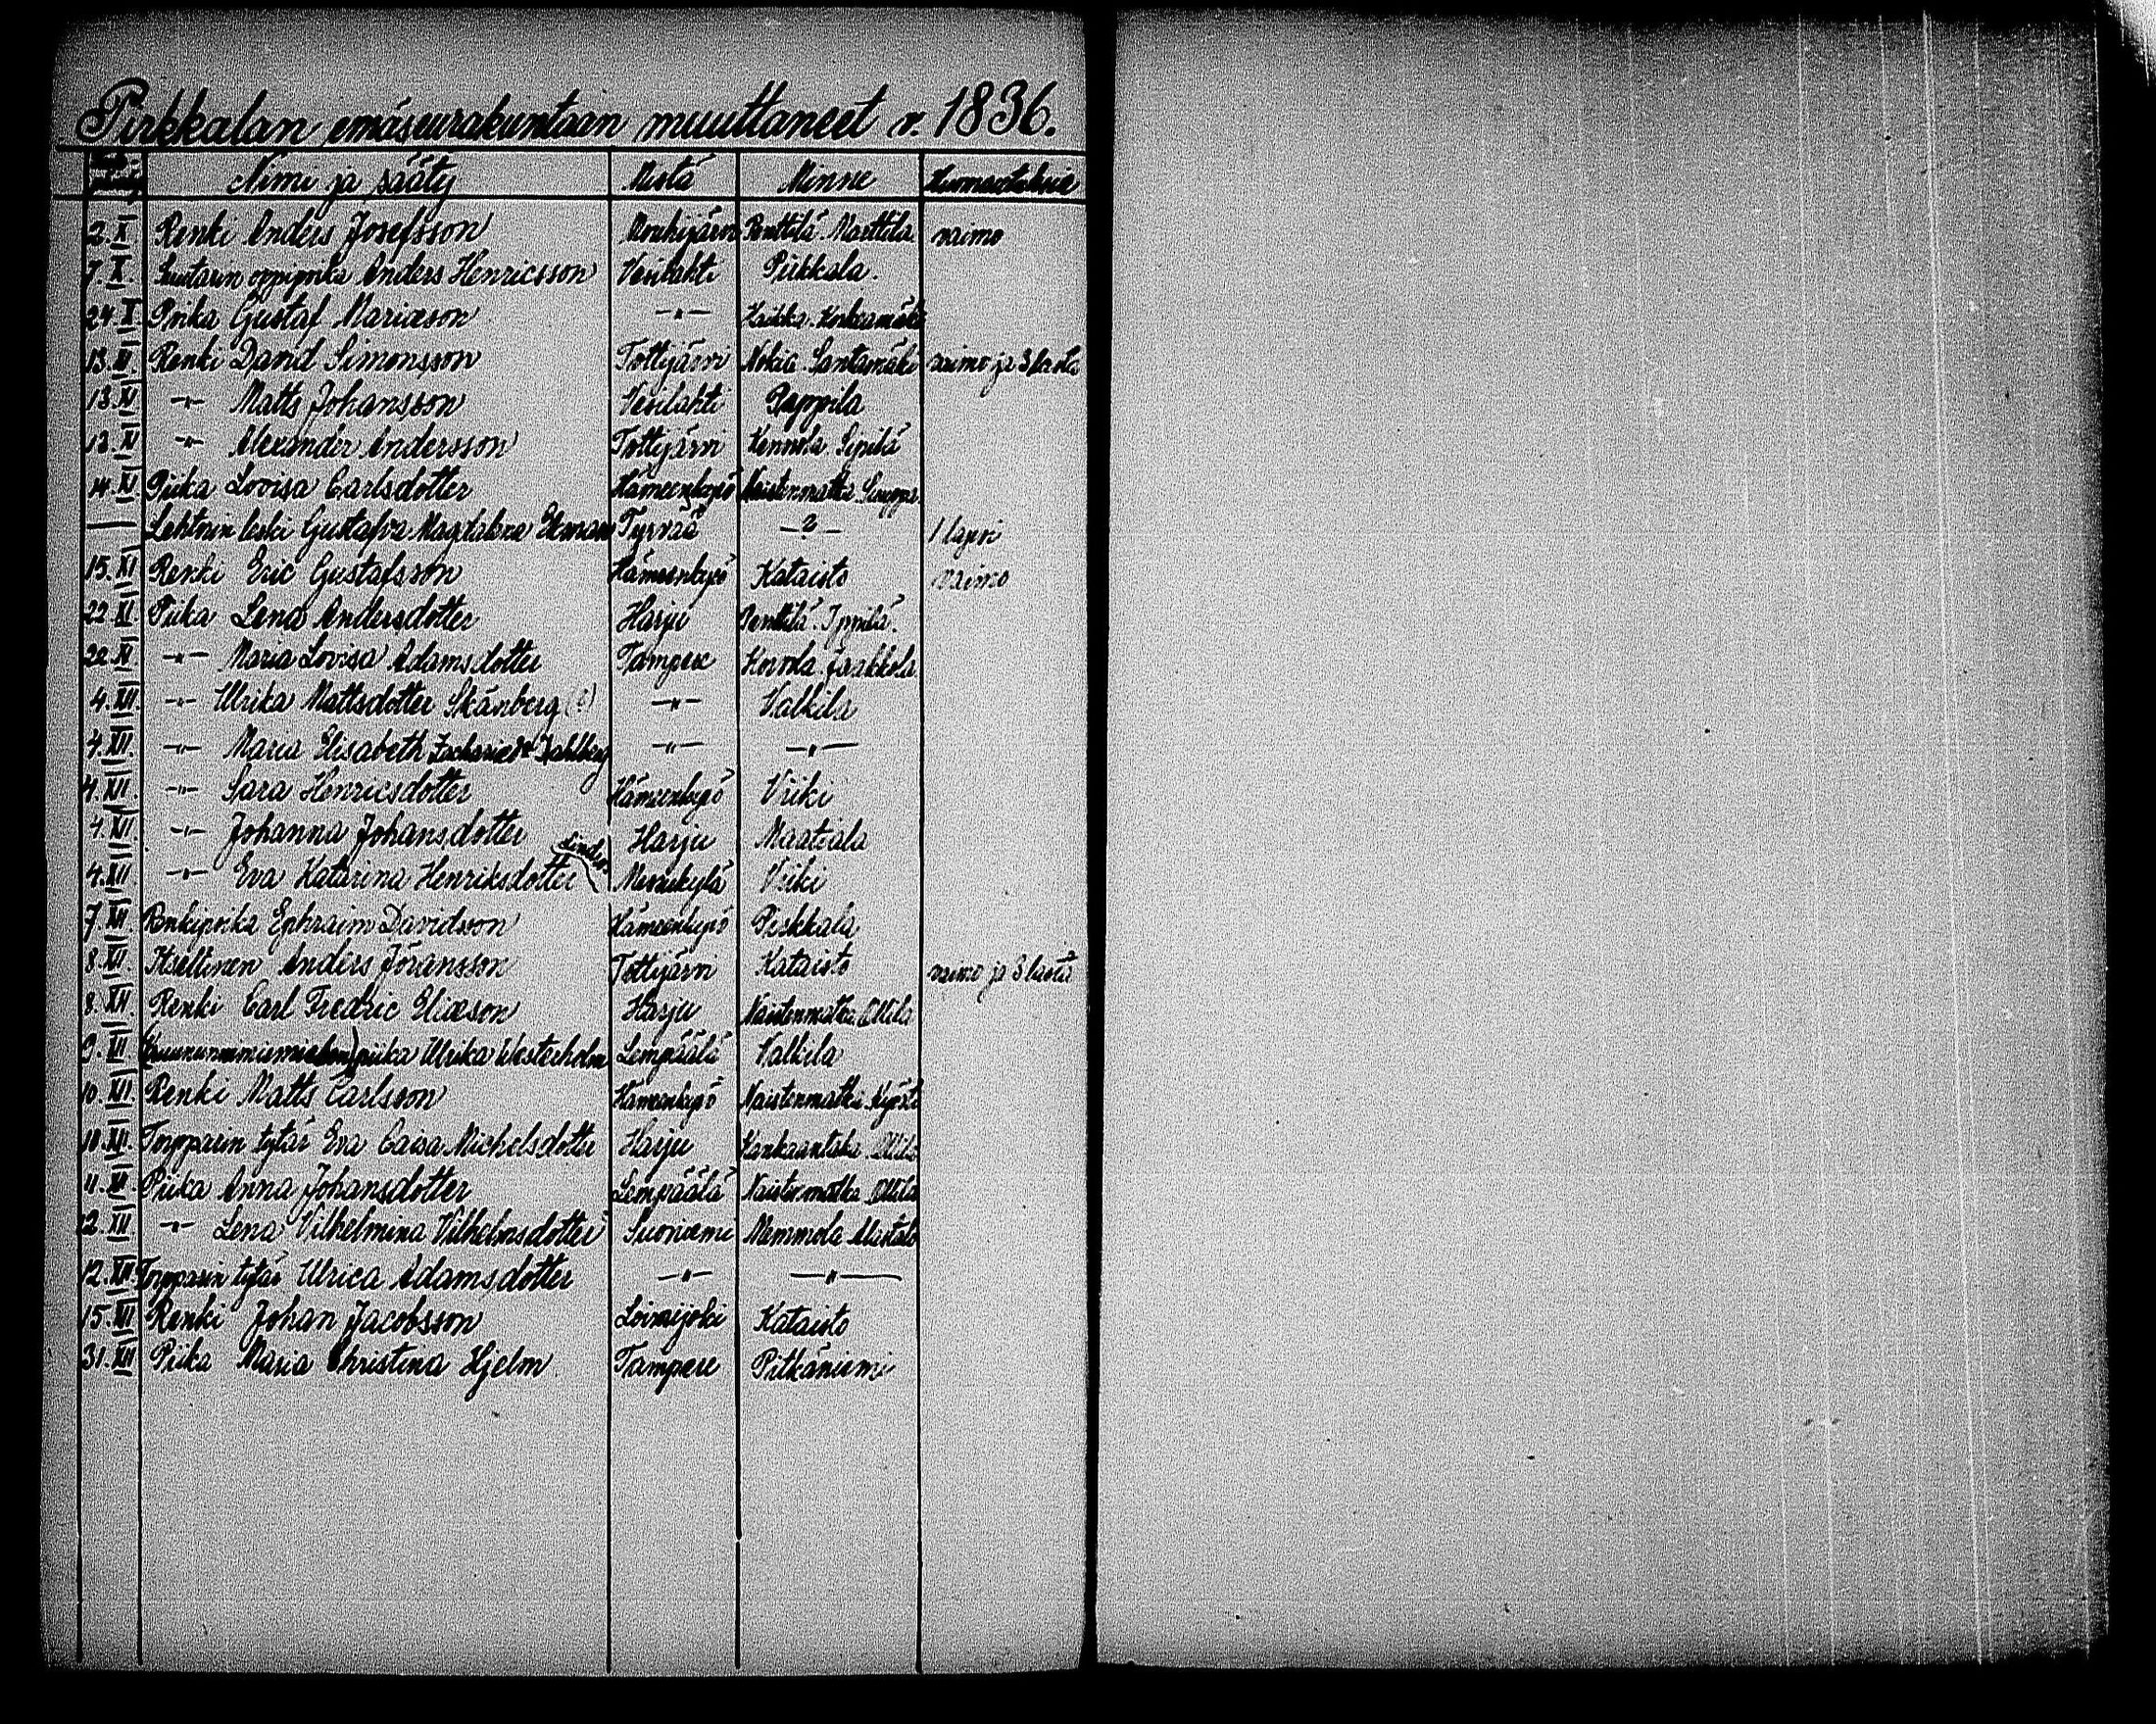 Pirkkalan emäseurakuntaan muuttaneet v. 1836.
Nimi ja sääty Mistä Minne
2.X Renki Anders Josefsson Mouhijärvi Penttilä. Marttila vaimo
7.X. Suutarin oppipoika Anders Henricsson Vesilahti Pirkkala.
24.X Poika Gustaf Mariæson -"- Haikka.
13.XI. Renki David Simonsson Tottijärvi Nokia. Santamäki vaimo ja 3 lasta
13.XI -"- Matts Johansson Vesilahti Pappila
13.XI -"- Alexander Andersson Tottijärvi Sipilä
14.XI. Piika Lovisa Carlsdotter Hämeenkyrö Naistenmatka.
— Lehtorin leski Gustafva Magdalena Ekman Tyrvää -?- 1 lapsi
15.XI Renki Eric Gustafsson Hämeenkyrö Kataisto vaimo
22.XI. Piika Lena Andersdotter Harju Penttilä.
22.XI -"- Maria Lovisa Adamsdotter Tampere Korvola. Jaakkola.
4.XII -"- Ulrika Mattsdotter Skånberg (?) -"- Valkila
4.XII. -"- Maria Elisabeth -"- -"-
4.XII. -"- Sara Henricsdotter Hämeenkyrö Viiki
4.XII. -"- Johanna Johansdotter Harju Maatiala
4.XII. -"- Eva Katarina Henriksdotter Messukylä Viiki
7.XII. Renkipoika Ephraim Davidsson Hämeenkyrö Pirkkala
8.XII. Itsellinen Anders Jöransson Tottijärvi Kataisto vaimo ja 3 lasta
8.XII. Renki Carl Fredric Eliæson Harju Naistenmatka. Ollila
9.XII (Kruununnimismiehen) piika Ulrika Westerholm Lempäälä Valkila
10.XII. Renki Matts Carlsson Hämeenkyrö Naistenmatka.
10.XII. Torpparin tytär Eva Caisa Michelsdotter Harju Kankaantaka. Ollila
11.XII. Piika Anna Johansdotter Lempäälä Naistenmatka. Ollila
12.XII -"- Lena Vilhelmina Vilhelmsdotter Suoniemi Memmola Alastalo
12.XII Torpparin tytär Ulrica Adamsdotter -"- -"-
15.XII Renki Johan Jacobsson Loimijoki Kataisto
31.XII Piika Maria Christina Hjelm. Tampere Pitkäniemi